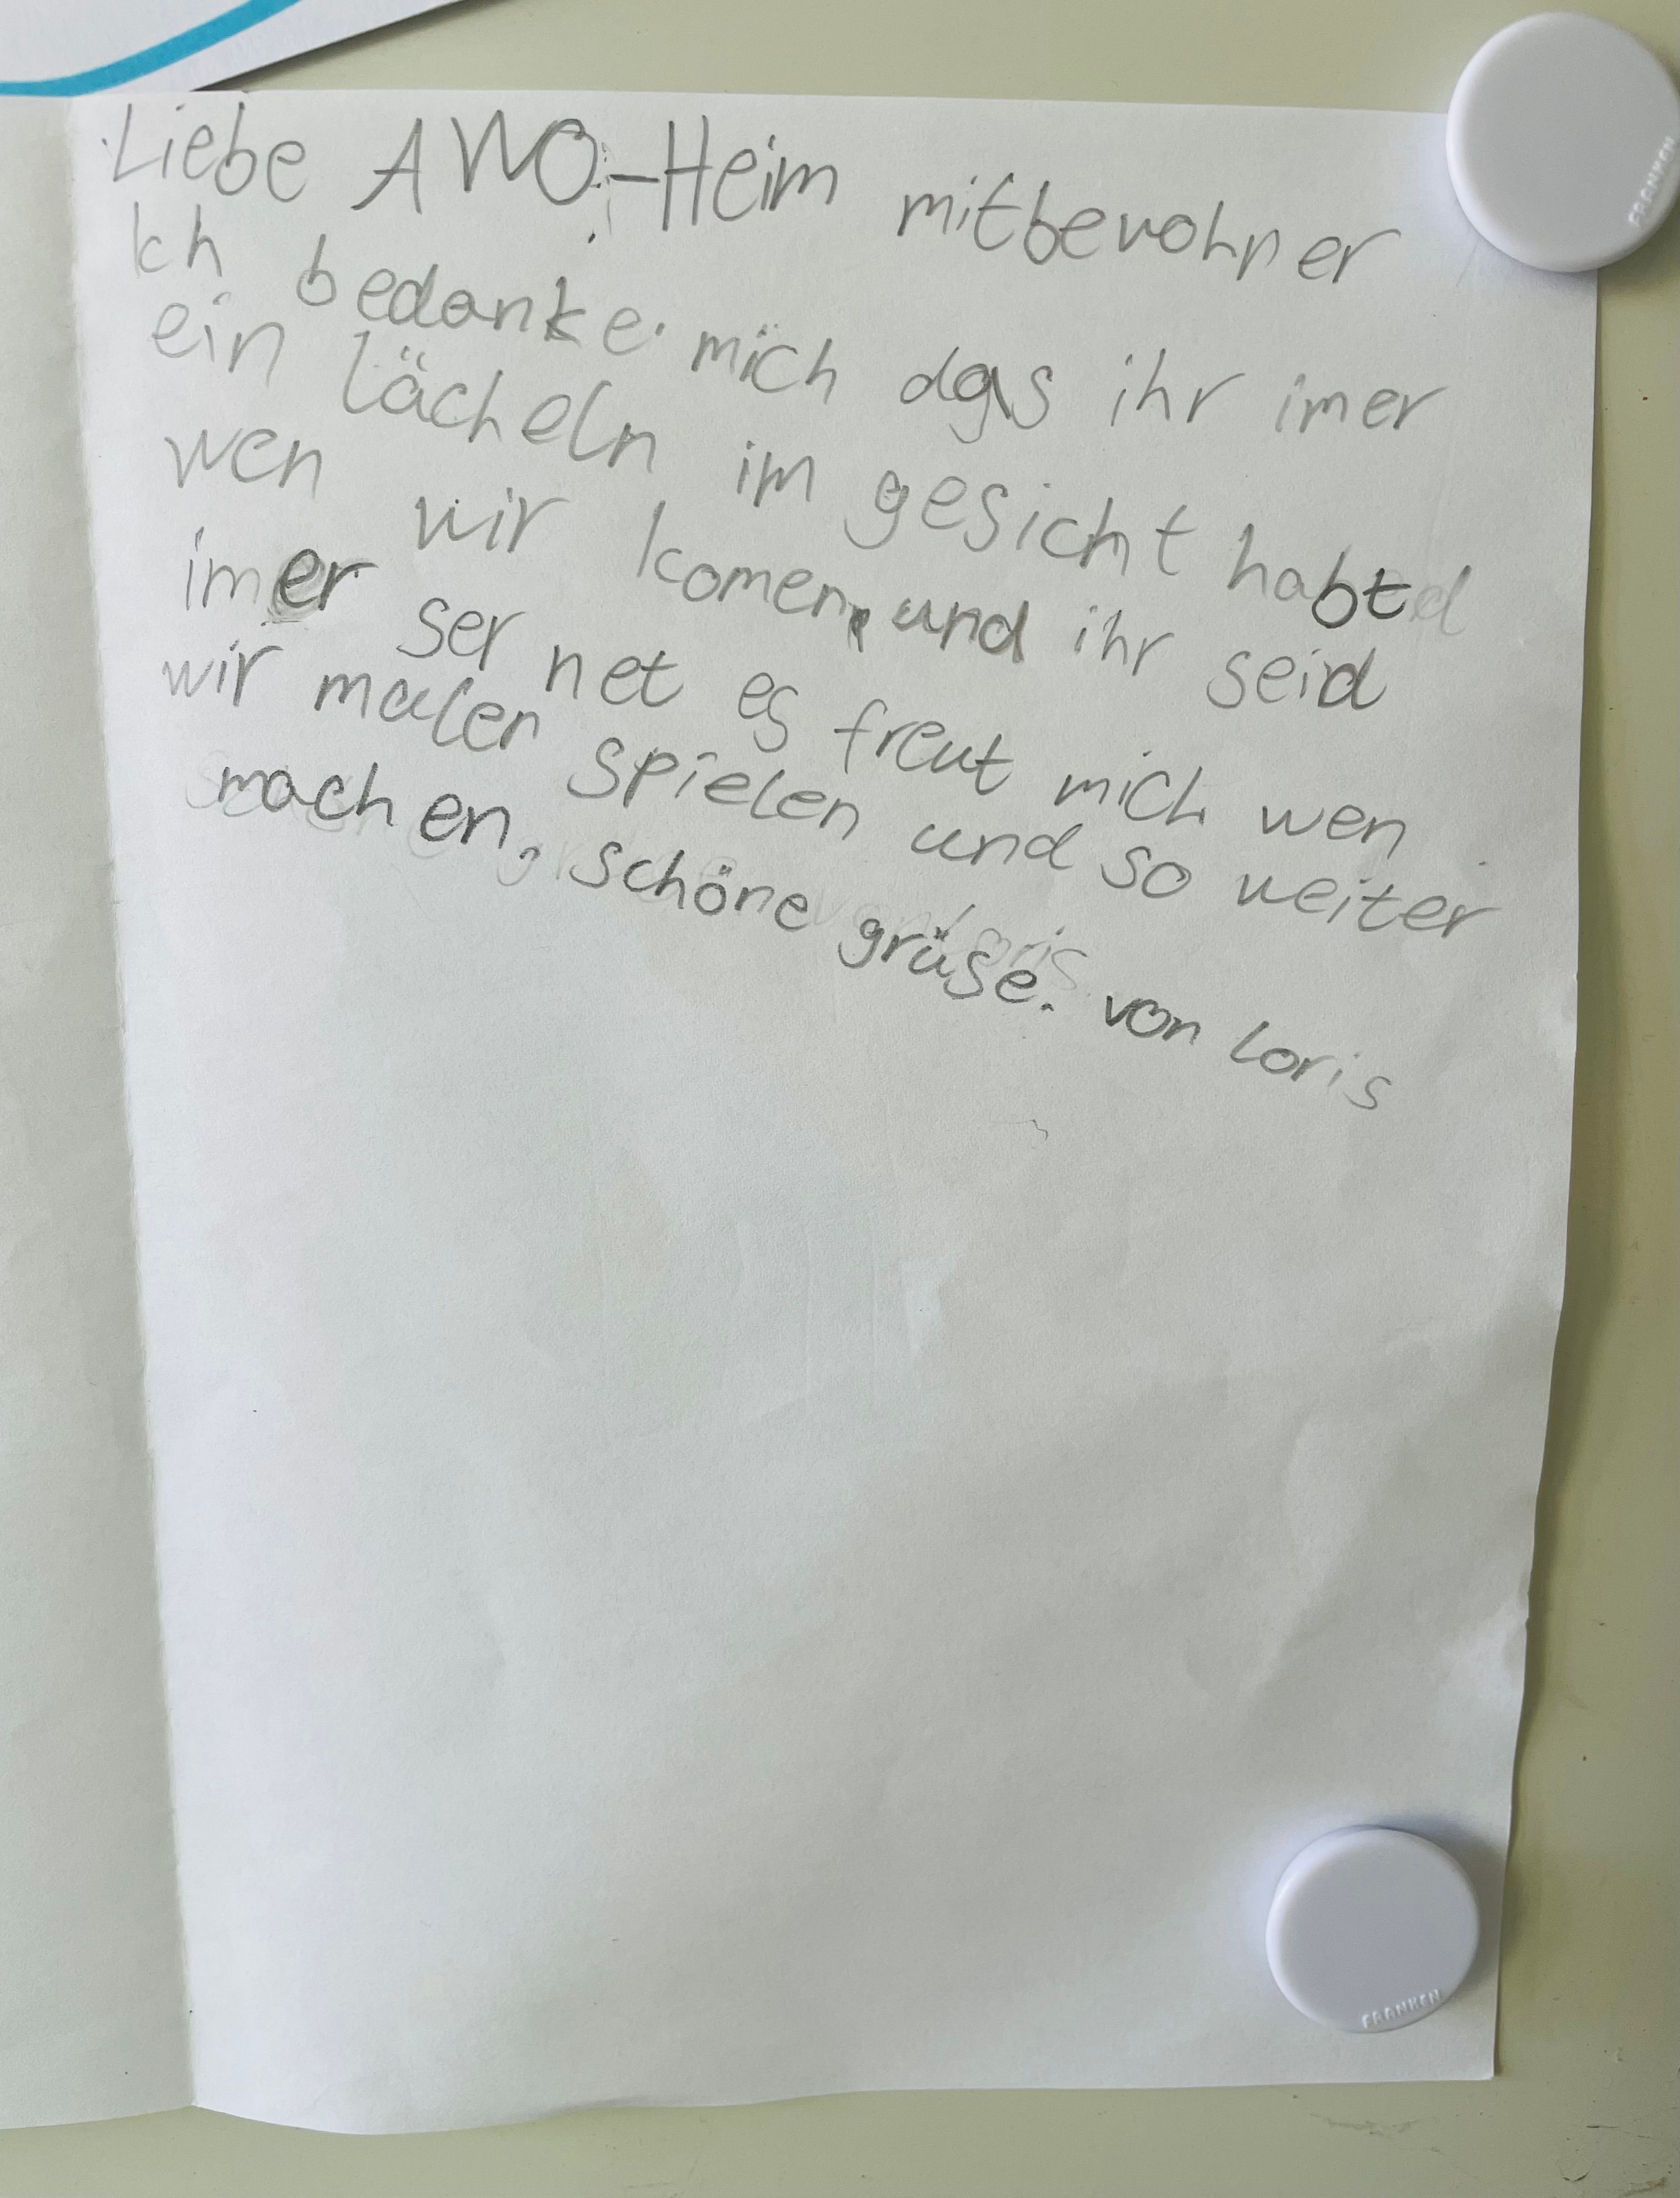 Liebe AWO-Heim mitbewohner
Ich bedanke mich das ihr imer
ein lächeln im gesicht habt
wen wir komen, und ihr seid
imer ser net es freut mich wen
wir malen spielen und so weiter
machen. schöne grüse. von loris
FRANKEN
FRANKEN